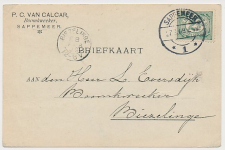 P. C. VAN CALCAR,
Boomkweeker,
SAPPEMEER.
SAPPEMEER
BRIEFKAART
AAN den Heer L. Eversdijk
Boomkweeker
Biezelinge